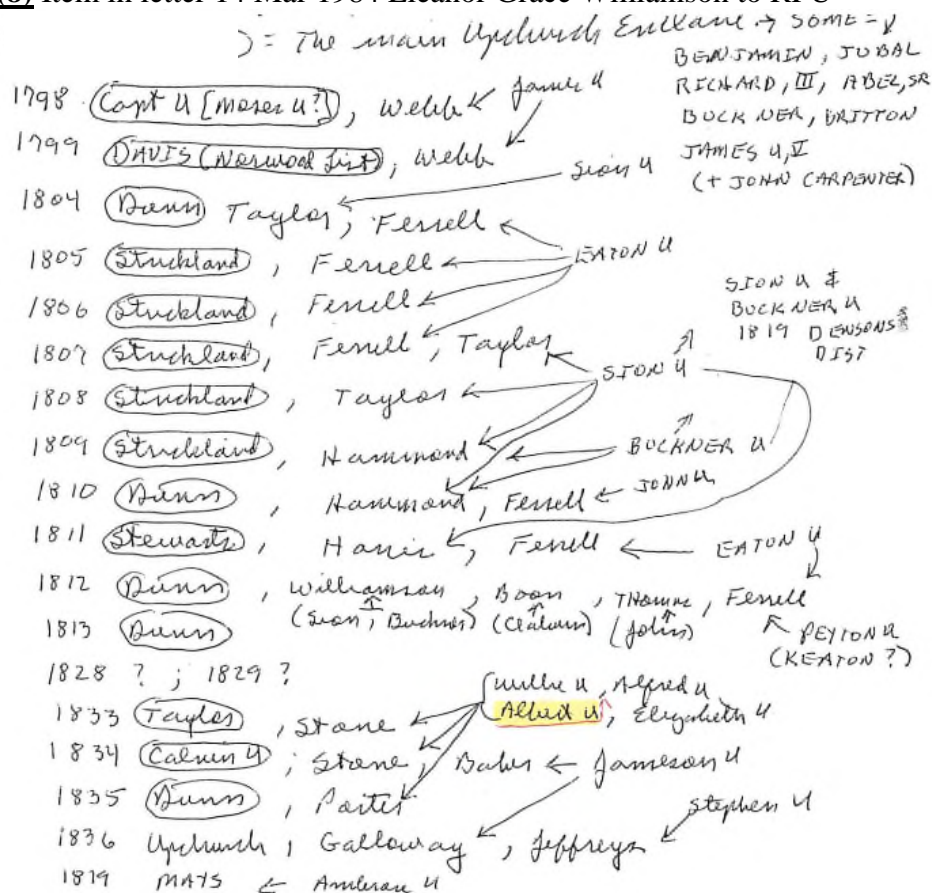 (6) Item in letter 14 Mar 1984 Eleanor Grace Williamson to RPU
) = The main Upchurch Enclave → SOME =
BENJAMIN, JUBAL
RICHARD, III, ABEL, SR
BUCKNER, BRITTON
JAMES U, V
(+ JOHN CARPENTER)
1798 Capt U [Moses U?], Webb James U
1799 DAVIS (Norwood List), Webb
Sion U
1804 Dunn Taylor, Ferrell
EATON U
1805 Strickland, Ferrell
1806 Strickland, Ferrell
SION U &
BUCKNER U
1819 DENSONS
DIST
1807 Strickland, Ferrell, Taylor
SION U
1808 Strickland, Taylor
1809 Strickland, Hammond
BUCKNER U
1810 Dunn, Hammond, Ferrell ← JOHN U
1811 Stewarts, Harris, Ferrell ← EATON U
1812 Dunn, Williamson, Boon, THomas, Ferrell
(Sion, Buckner) (Calvin) (John)
PEYTON U
(KEATON ?)
1813 Dunn
1828 ? ; 1829 ?
Willie U, Alfred U
Allred U, Elizabeth U
1833 Taylor, Stone
1834 Calvin U; Stone, Baker ← Jameson U
1835 Dunn, Porter
Stephen U
1836 Upchurch, Galloway, Jeffreys
1819 MAYS ← Ambrose U